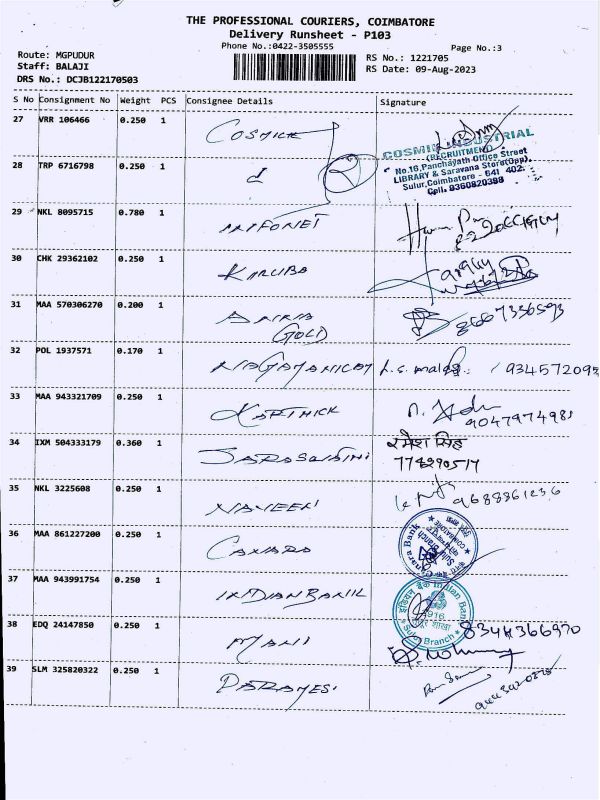 THE PROFESSIONAL COURIERS, COIMBATORE
Delivery Runsheet - P103
Phone No.:0422-3505555
Page No.:3
Route: MGPUDUR
Staff: BALAJI
DRS No.: DCJB122170503
RS No.: 1221705
RS Date: 09-Aug-2023
S No Consignment No Weight PCS Consignee Details Signature
27 VRR 106466 0.250 1 COSMICK
COSMIN INDUSTRIAL
(RECRUITMENT)
No.16,Panchayath Office Street
LIBRARY & Saravana Store(Opp),
Sulur,Coimbatore - 641 402.
Cell. 9360820398
28 TRP 6716798 0.250 1
29 NKL 8095715 0.780 1 INFONET
30 CHK 29362102 0.250 1 KARUBA
31 MAA 570306270 0.200 1
GOLD 8667336593
32 POL 1937571 0.170 1 NAGAMANICAM 934572095
33 MAA 943321709 0.250 1 KARTHICK
9047974981
34 IXM 504333179 0.360 1 SARASWATHI रमेश सिंह
774290517
35 NKL 3225608 0.250 1 NAVEEN 9688861236
36 MAA 861227200 0.250 1 CANARA
Canara Bank
Sulur Branch
37 MAA 943991754 0.250 1 INDIAN BANK
इंडियन बैंक Indian Bank
Sulur Branch
38 EDQ 24147850 0.250 1 MANI 8344366970
39 SLM 325820322 0.250 1 PARAMES